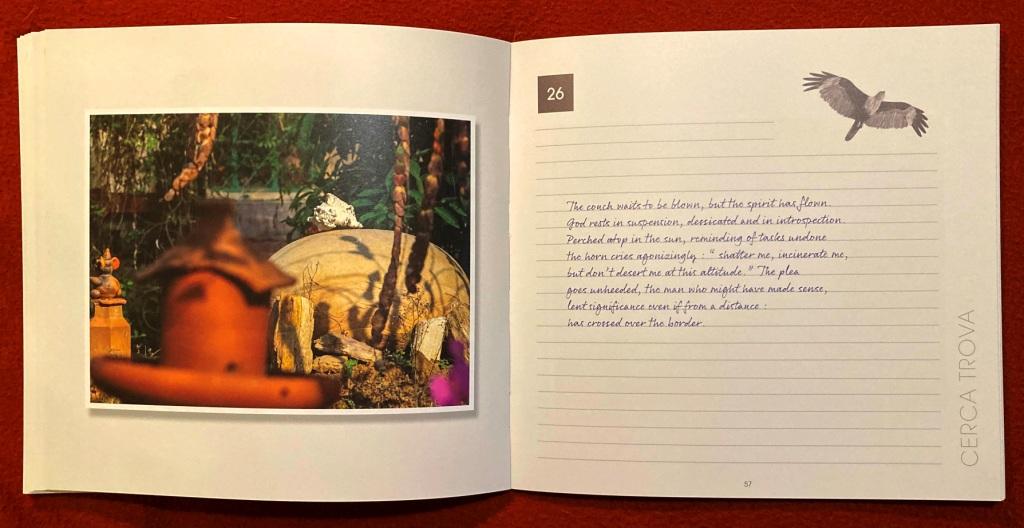 26
The conch waits to be blown, but the spirit has flown.
God rests in suspension, dessicated and in introspection.
Perched atop in the sun, reminding of tasks undone
the horn cries agonizingly : " shatter me, incinerate me,
but don't desert me at this altitude." The plea
goes unheeded, the man who might have made sense,
lent significance even if from a distance :
has crossed over the border.
CERCA TROVA
57